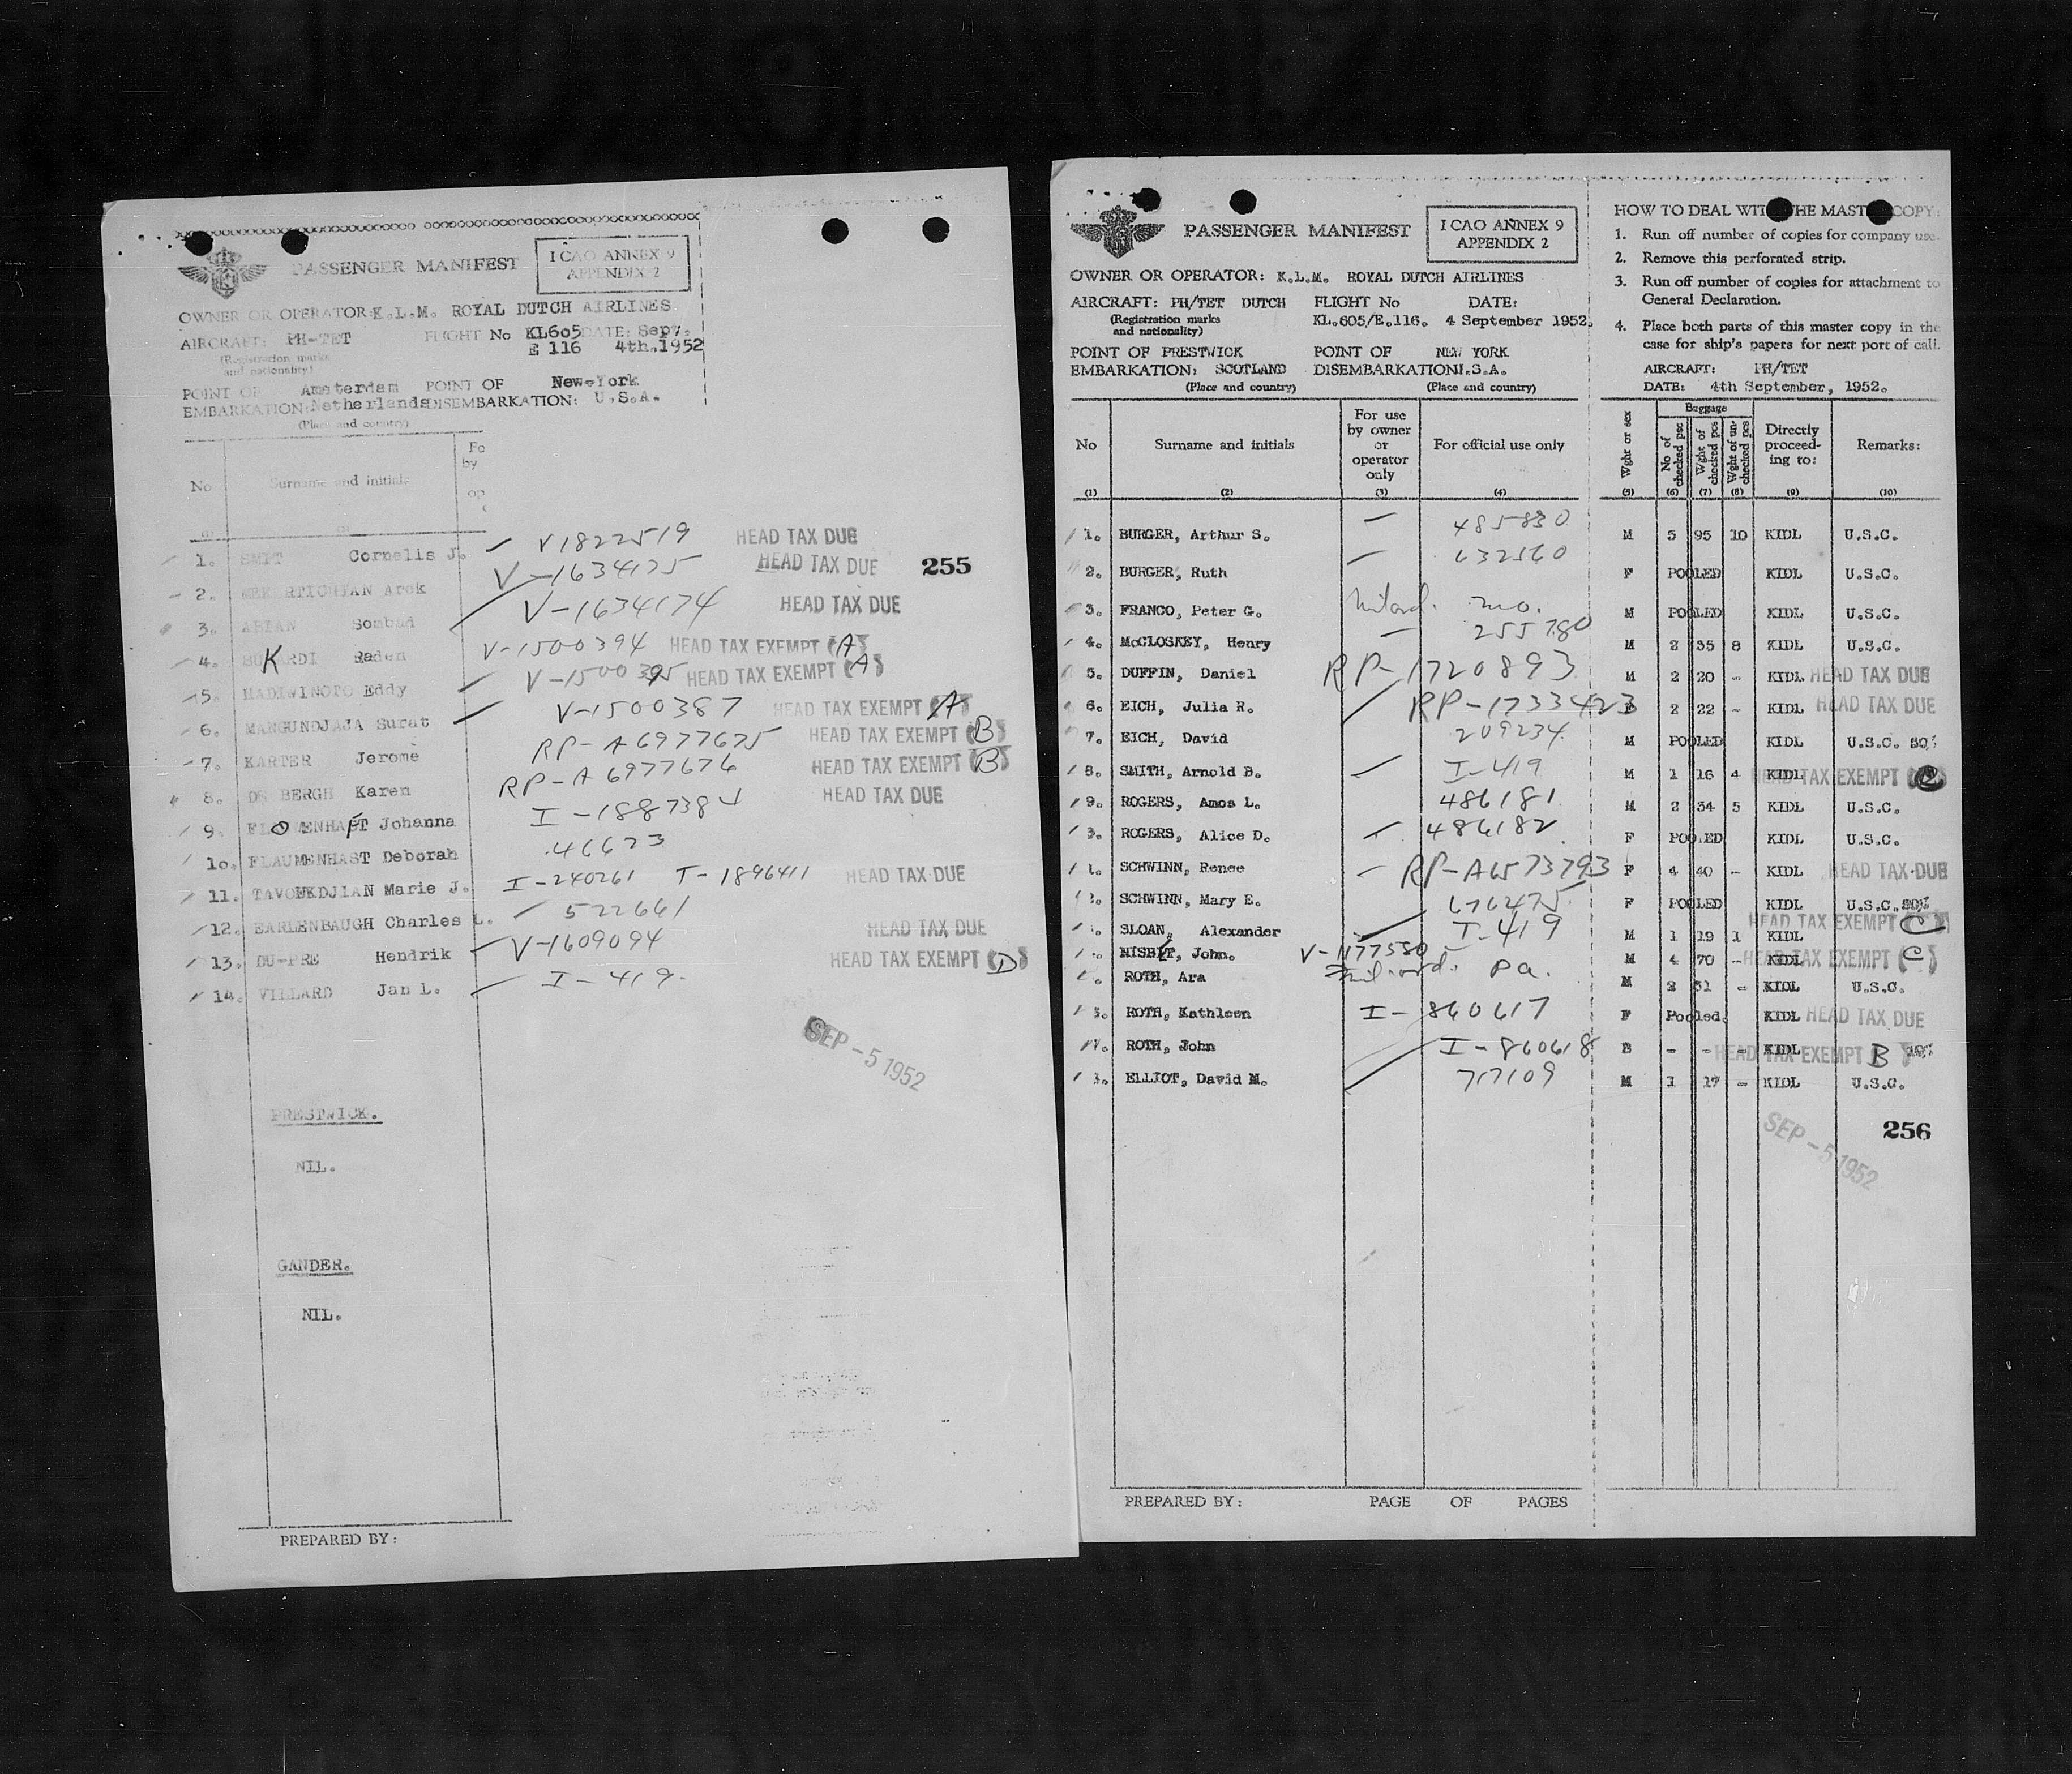 PASSENGER MANIFEST
I CAO ANNEX 9
APPENDIX 2
OWNER OR OPERATOR: K.L.M. ROYAL DUTCH AIRLINES
AIRCRAFT: PH-TET FLIGHT No KL605 DATE: Sep7.
(Registration marks and nationality) E 116 4th.1952
POINT OF Amsterdam POINT OF New-York
EMBARKATION: Netherlands DISEMBARKATION: U.S.A.
(Place and country)
No Surname and initials Fo by op
1. SMIT Cornelis J. V1822519 HEAD TAX DUE
2. MEKERTICHJAN Arek V-1634175 HEAD TAX DUE 255
3. ABIAN Sombad V-1634174 HEAD TAX DUE
4. K ARDI Raden V-1500394 HEAD TAX EXEMPT (A)
5. HADIWINOTO Eddy V-1500395 HEAD TAX EXEMPT (A)
6. MANGUNDJAJA Surat V-1500387 HEAD TAX EXEMPT A
7. KARTER Jerome RP-A6977675 HEAD TAX EXEMPT (B)
8. DE BERGH Karen RP-A6977676 HEAD TAX EXEMPT (B)
9. Johanna I-1887384 HEAD TAX DUE
10. FLAUMENHAST Deborah 46623
11. TAVOUKDJIAN Marie J. I-240261 T-1896411 HEAD TAX DUE
12. EARLENBAUGH Charles L. 522661
13. DU-PRE Hendrik V-1609094 HEAD TAX DUE
14. VILLARD Jan L. I-419. HEAD TAX EXEMPT (D)
SEP-5 1952
PRESTWICK.
NIL.
GANDER.
NIL.
PREPARED BY:
PASSENGER MANIFEST
I CAO ANNEX 9
APPENDIX 2
OWNER OR OPERATOR: K.L.M. ROYAL DUTCH AIRLINES
AIRCRAFT: PH/TET DUTCH FLIGHT No DATE:
(Registration marks and nationality) KL.605/E.116. 4 September 1952.
POINT OF PRESTWICK POINT OF NEW YORK
EMBARKATION: SCOTLAND DISEMBARKATION: U.S.A.
(Place and country) (Place and country)
HOW TO DEAL WITH THE MASTER COPY:
1. Run off number of copies for company use.
2. Remove this perforated strip.
3. Run off number of copies for attachment to
General Declaration.
4. Place both parts of this master copy in the
case for ship's papers for next port of call.
AIRCRAFT: PH/TET
DATE: 4th September, 1952.
No Surname and initials For use by owner or operator only For official use only Wght or sex Baggage No of checked psc Wght of checked pcs Wght of un-checked pcs Directly proceed-ing to: Remarks:
(1) (2) (3) (4) (5) (6) (7) (8) (9) (10)
1. BURGER, Arthur S. — 485830 M 5 95 10 KIDL U.S.C.
2. BURGER, Ruth — 632560 F POOLED KIDL U.S.C.
3. FRANCO, Peter G. mo. M POOLED KIDL U.S.C.
4. McCLOSKEY, Henry — 255780 M 2 35 8 KIDL U.S.C.
5. DUFFIN, Daniel RP-1720893 M 2 20 - KIDL HEAD TAX DUE
6. EICH, Julia R. RP-1733423 F 2 22 - KIDL HEAD TAX DUE
7. EICH, David 209234 M POOLED KIDL U.S.C. 50%
8. SMITH, Arnold B. I-419 M 1 16 4 KIDL HEAD TAX EXEMPT (C)
9. ROGERS, Amos L. 486181 M 2 34 5 KIDL U.S.C.
ROGERS, Alice D. — 486182 F POOLED KIDL U.S.C.
SCHWINN, Renee — RP-A6573793 F 4 40 - KIDL HEAD TAX DUE
SCHWINN, Mary E. 676475 F POOLED KIDL U.S.C. 50%
SLOAN, Alexander I-419 M 1 19 1 KIDL HEAD TAX EXEMPT (C)
NISBET, John. V-1177550 M 4 70 - KIDL HEAD TAX EXEMPT (C)
ROTH, Ara pa. M 2 31 - KIDL U.S.C.
ROTH, Kathleen I-860617 F Pooled. KIDL HEAD TAX DUE
ROTH, John I-860618 B - - - KIDL HEAD TAX EXEMPT B 10%
ELLIOT, David M. 717109 M 1 17 - KIDL U.S.C.
256
SEP-5 1952
PREPARED BY: PAGE OF PAGES